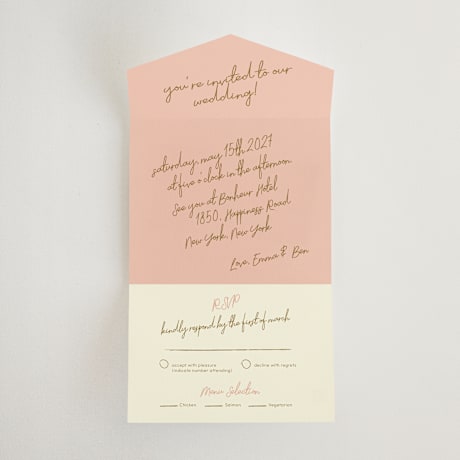 you're invited to our
wedding!
saturday, may 15th 2027
at five o'clock in the afternoon
See you at Bonheur Hotel
1850, Happiness Road
New York, New York
Love, Emma & Ben
RSVP
kindly respond by the first of march
accept with pleasure decline with regrets
(indicate number attending)
Menu Selection
Chicken Salmon Vegetarian